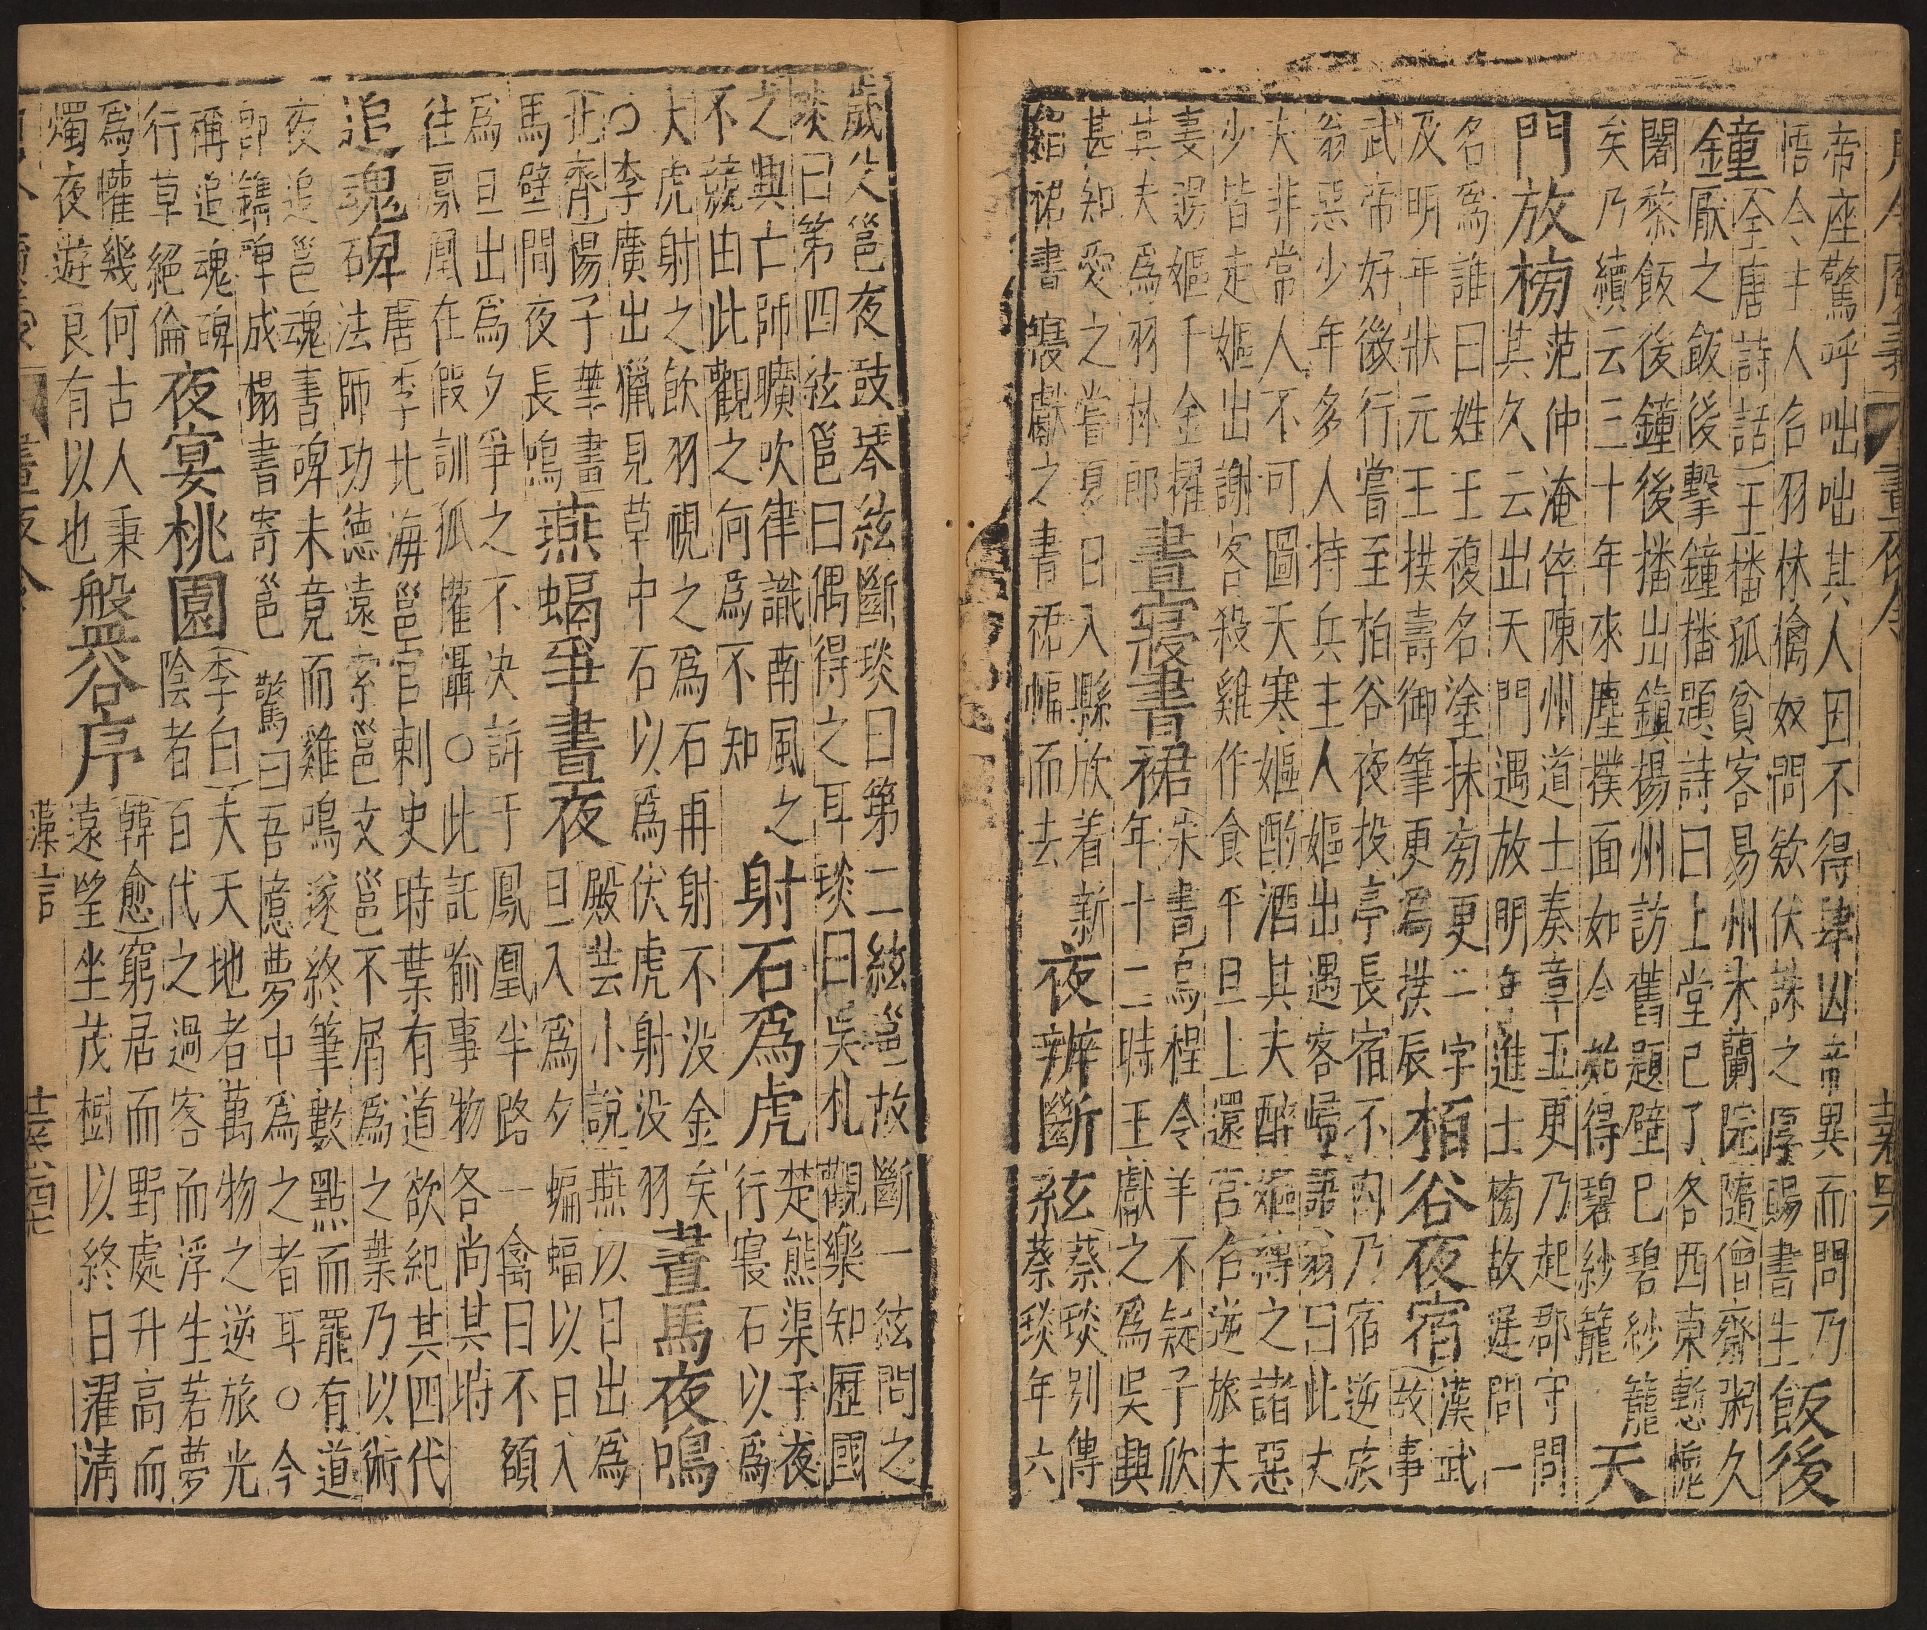 帝座驚呼咄咄其人因不得肆凶帝異而問乃
悟今主人召羽林擒奴問欵伏誅之厚賜書生
飯後
鐘
全唐詩話王播孤貧客昜州木蘭院隨僧齋粥久
厭之飯後擊鐘播題詩曰上堂已了各西東慙愧
闍黎飯後鐘後播出鎮揚州訪舊題壁已碧紗籠
矣乃續云三十年來塵撲面如今始得碧紗籠
天
門放榜
范仲淹倅陳州道士奏章五更乃起郡守問
其久云出天門遇放明年進士榜故遲問一
名爲誰曰姓王複名塗抹旁更二字
及明年狀元王撲壽御筆更爲撲辰
柏谷夜宿
漢武
故事
武帝好微行嘗至柏谷夜投亭長宿不内乃宿逆旅
翁惡少年多人持兵主人嫗出遇客歸語翁曰此丈
夫非常人不可圖天寒嫗酌酒其夫醉嫗縛之諸惡
少皆走嫗出謝客殺雞作食平旦上還宮召逆旅夫
妻賜嫗千金擢
其夫爲羽林郎
晝寢書裙
宋書烏程令羊不疑子欣
年十二時王獻之爲吳興
甚知愛之嘗夏日入縣欣着新
絹裙晝寢獻之書裙幅而去
夜辨斷絃
蔡琰別傳
蔡琰年六
歲父邕夜鼓琴絃斷琰曰第二絃邕故斷一絃問之
琰曰第四絃邕曰偶得之耳琰曰吳札觀樂知歷國
之興亡師曠吹律識南風之
不競由此觀之何爲不知
射石爲虎
楚熊渠子夜
行寢石以爲
大虎射之飲羽視之爲石再射不没金矣
○李廣出獵見草中石以爲伏虎射没羽
晝馬夜鳴
北齊楊子華畫
馬壁間夜長鳴
燕蝠爭晝夜
殷芸小說燕以日出爲
旦入爲夕蝙蝠以日入
爲旦出爲夕爭之不决訴于鳳凰半路一禽曰不須
往鳳凰在假訓狐權攝○此託喻事物各尚其時
追魂碑
唐李北海邕官刺史時葉有道欲紀其四代
石法師功德遠索邕文邕不屑爲之葉乃以術
夜追邕魂書碑未竟而雞鳴遂終筆數點而罷有道
卽鐫碑成榻書寄邕驚曰吾憶夢中爲之者耳○今
稱追魂碑
行草絕倫
夜宴桃園
李白夫天地者萬物之逆旅光
陰者百代之過客而浮生若夢
爲懽幾何古人秉
燭夜遊良有以也
盤谷序
韓愈窮居而野處升高而
遠望坐茂樹以終日濯清